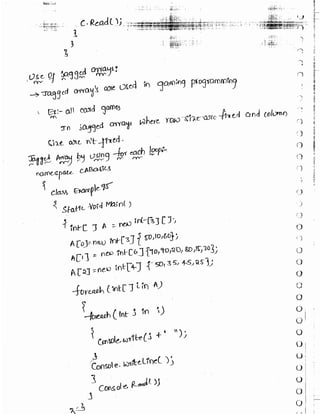 C.Read();
}
}
}
Use of jagged arrays:
→ Jagged array's are used in gaming programming
Ex:- all card games
In jagged arrays where row size are fixed and column
size are n't fixed.
Jagged Array by using for each loop:-
namespace CABasics
{
class Example95
{ static void Main()
{ int[ ] A = new int[3][ ];
A[0] = new int[3] { 50,10,60};
A[1] = new int[6]{
A[2] = new int[4] { 50, 35, 45, 25 };
foreach (int[ ] i in A)
{
foreach ( int j in i)
{
Console.write(j + " ");
}
Console.writeLine( );
}
Console.Read( );
}